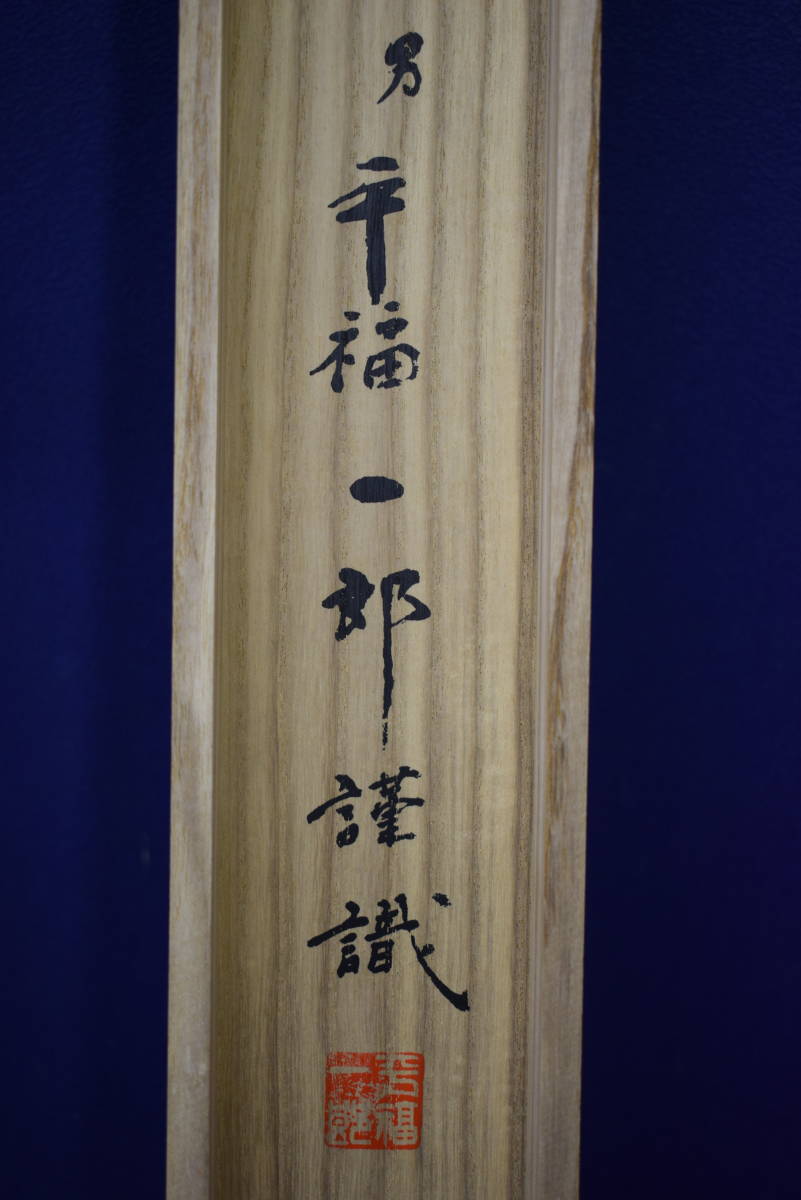 男
平福一郎謹識
平福
一郎